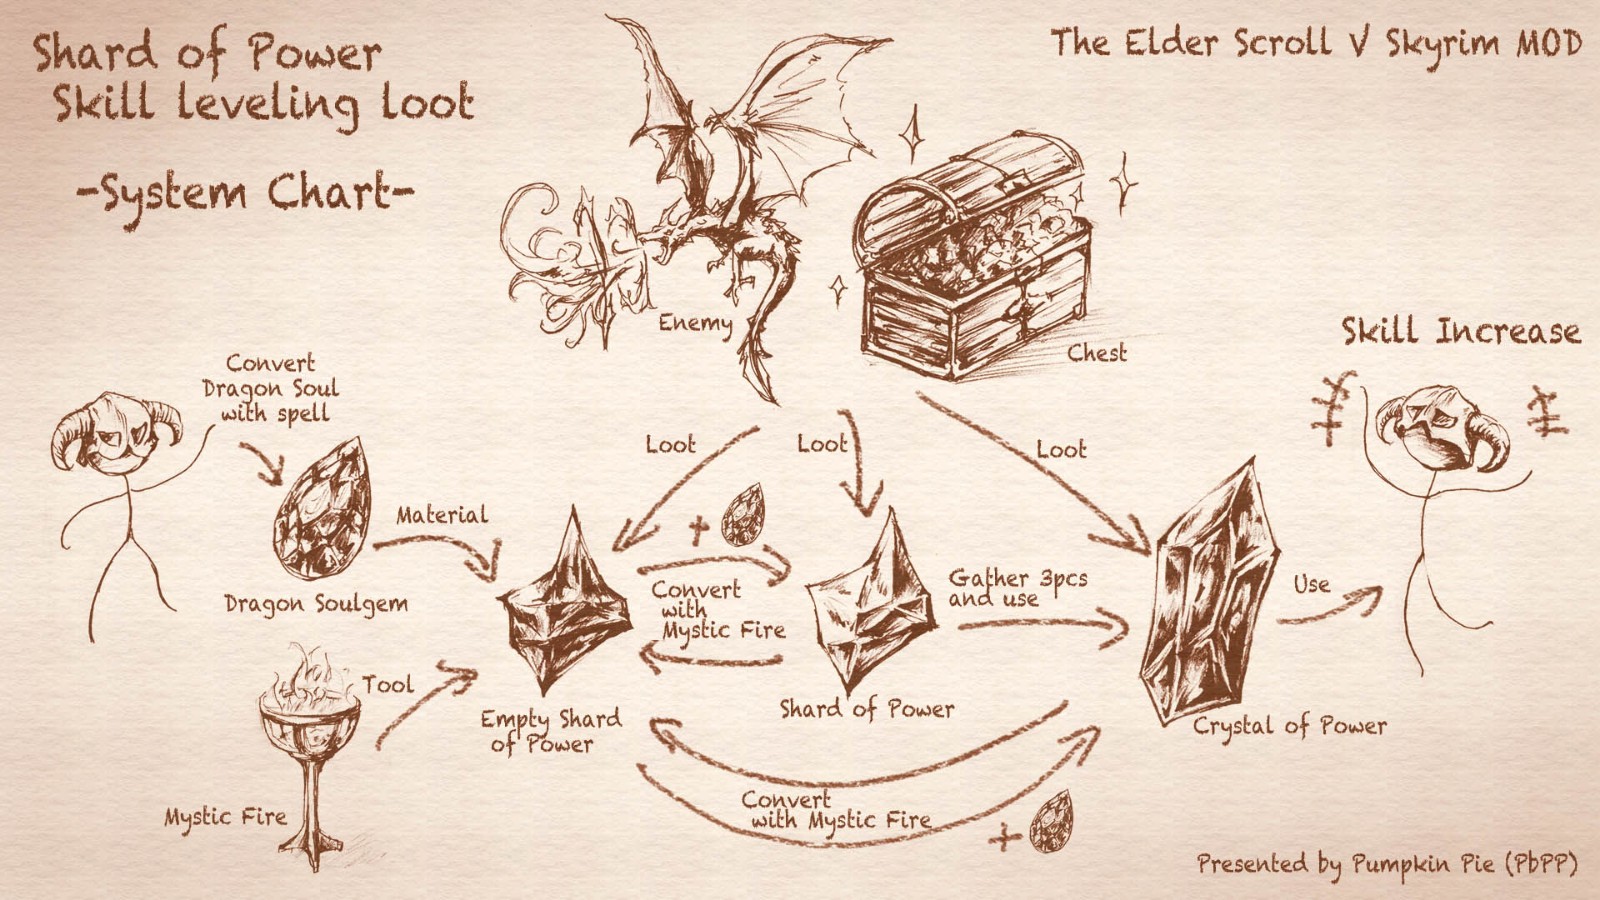 Shard of Power
Skill leveling loot
-System Chart-
The Elder Scroll V Skyrim MOD
Enemy
Chest
Skill Increase
Convert
Dragon Soul
with spell
Loot
Loot
Loot
Material
+
Dragon Soulgem
Convert
with
Mystic Fire
Gather 3pcs
and use
Use
Tool
Empty Shard
of Power
Shard of Power
Crystal of Power
Mystic Fire
Convert
with Mystic Fire
+
Presented by Pumpkin Pie (PbPP)